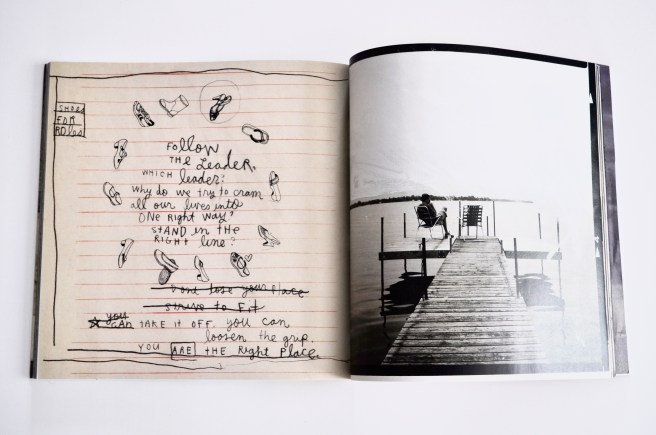 SHOES
FOR
ROles
Follow
THE Leader.
WHICH leader?
WHY do we try to cram
all our lives into
ONE RIGHT WAY?
StAND IN tHE
RIGHT line?
Dont lose your Place
strive to Fit
you
CAN TAKE IT OFF. YOU CAN
loosen the grip.
YOU ARE the Right Place.